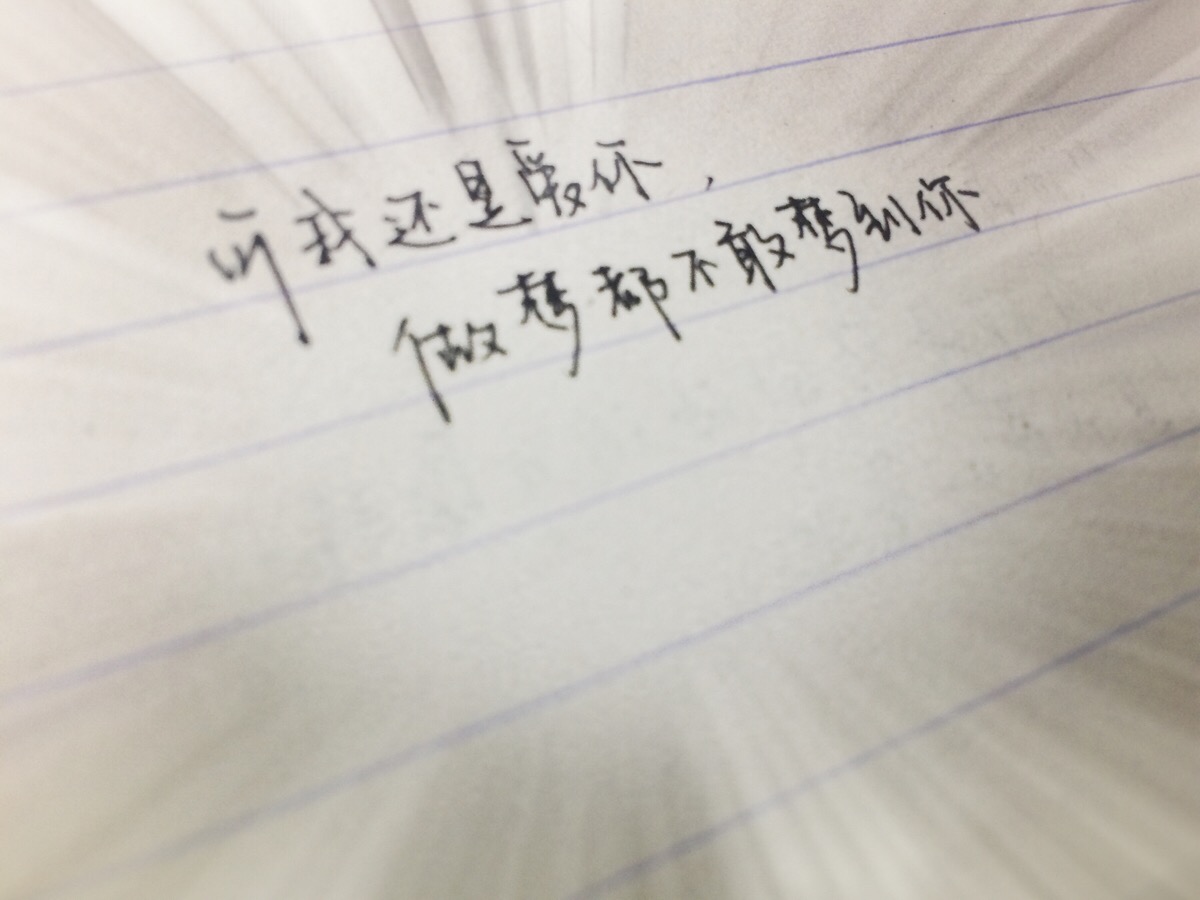 我还是爱你，
做梦都不敢梦到你